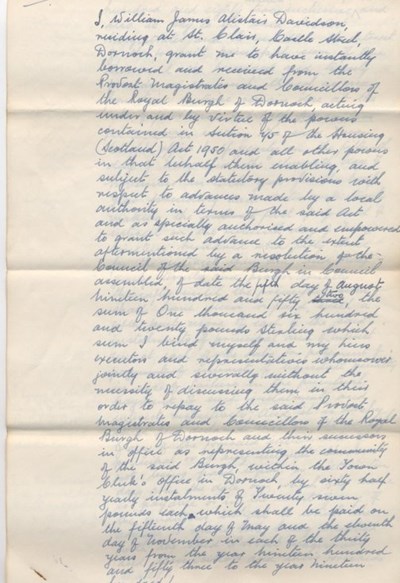 I, William James Alistair Davidson,
residing at St. Clair, Castle Street,
Dornoch, grant me to have instantly
borrowed and received from the
Provost Magistrates and Councillors of
the Royal Burgh of Dornoch, acting
under and by virtue of the powers
contained in section 45 of the Housing
(Scotland) Act 1950 and all other powers
in that behalf them enabling, and
subject to the statutory provisions with
respect to advances made by a local
authority in terms of the said Act
and as specially authorised and empowered
to grant such advance to the extent
aftermentioned by a resolution of the
Council of the said Burgh in Council
assembled, of date the fifth day of August
Nineteen hundred and fifty two, the
sum of One thousand six hundred
and twenty pounds Sterling which
sum I bind myself and my heirs
executors and representatives whomsoever
jointly and severally without the
necessity of discussing them in their
order to repay to the said Provost
Magistrates and Councillors of the Royal
Burgh of Dornoch and their successors
in office as representing the community
of the said Burgh, within the Town
Clerk's office in Dornoch, by sixty half
yearly instalments of Twenty seven
pounds each which shall be paid on
the fifteenth day of May and the eleventh
day of November in each of the thirty
years from the year nineteen hundred
and fifty three to the year nineteen